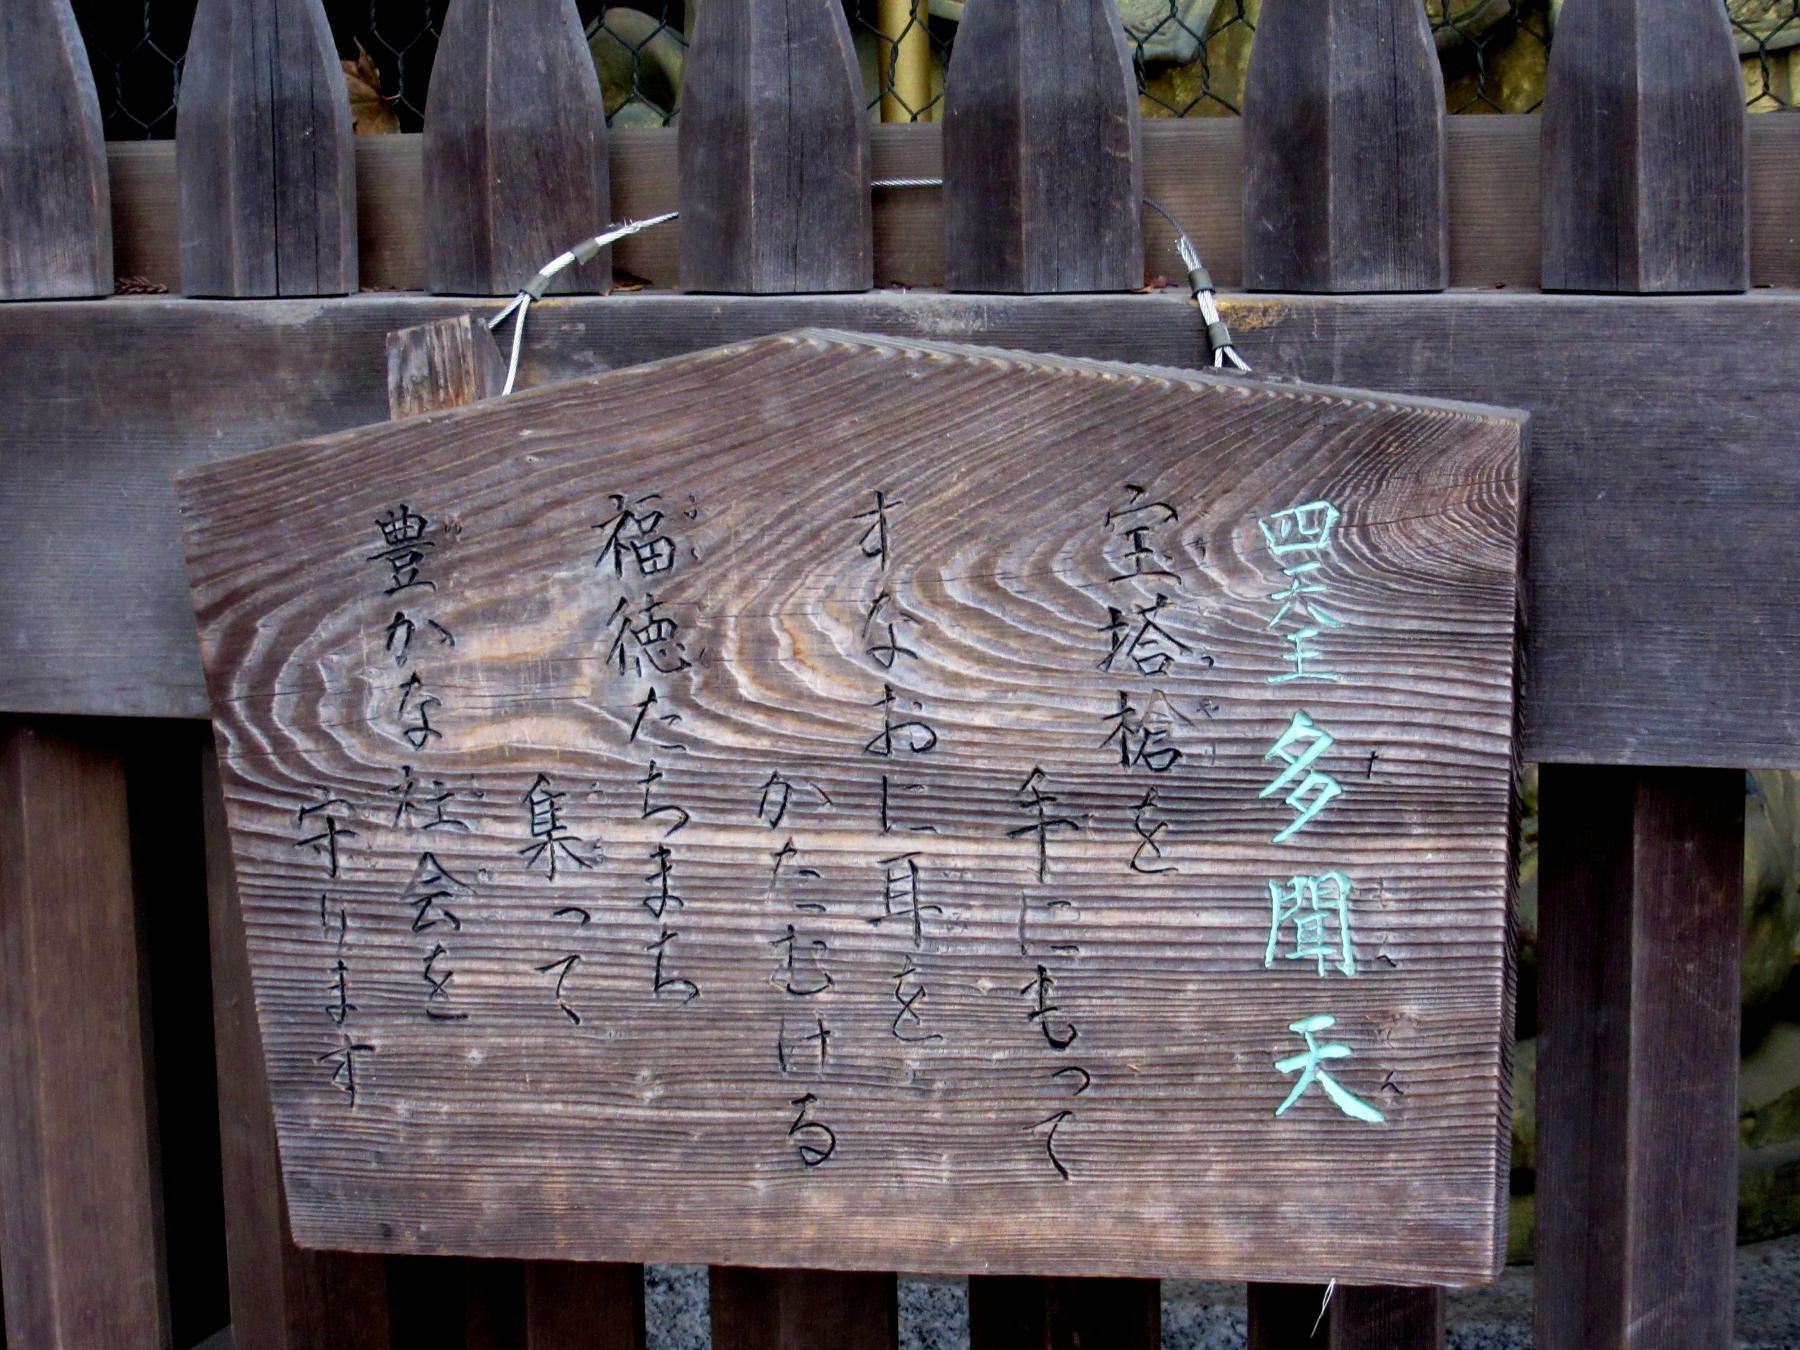 四天王 多聞天
宝塔槍を
手にもって
すなおに耳を
かたむける
福徳たちまち
集って
豊かな社会を
守ります